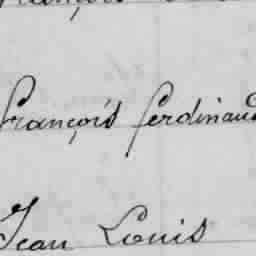 françois ferdinand
Jean Louis